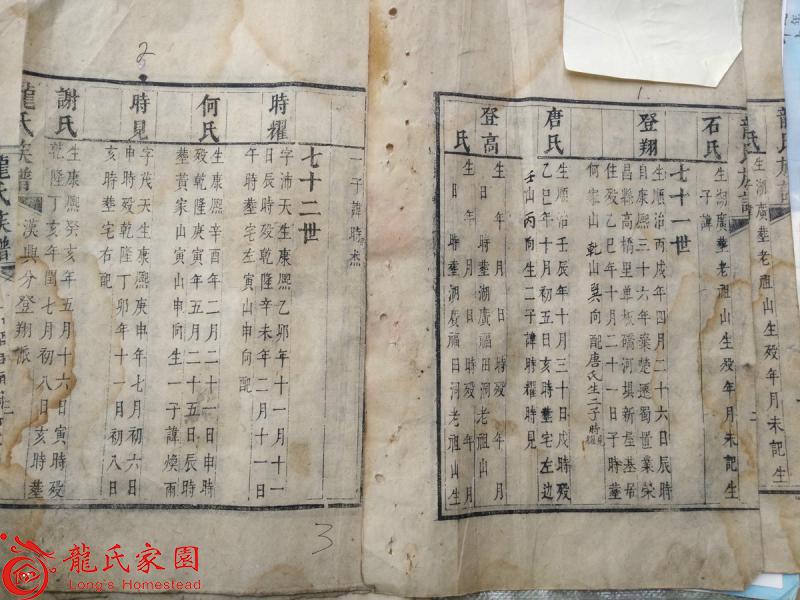 龍氏族譜
生湖廣塟老祖山生殁年月未記生
二
龍氏族譜
石氏
生湖廣塟老祖山生殁年月未記生
一子諱
七十一世
登翔
生順治丙戌年四月二十六日辰時
自康熙三十六年棄楚遷蜀置業榮
昌縣高橋里單板橋河埧新屋基居
住殁乙巳年十月二十一日子時塟
何家山乾山巽向配唐氏生二子時耀見
唐氏
生順治壬辰年十月三十日戌時殁
乙巳年十月初五日亥時塟宅左边
壬山丙向生二子諱時耀時見
登高
生年月日時殁年月
日時塟湖廣福田洞老祖山
氏
生年月日時殁年月
日時塟湖廣福田洞老祖山生
1.
一子諱時杰
七十二世
時耀
字沛天生康熙乙卯年十一月十一
日辰時殁乾隆辛未年二月十一日
午時塟宅左寅山申向配
何氏
生康熙辛酉年二月二十一日申時
殁乾隆庚寅年五月二十五日辰時
塟黃家山寅山申向生一子諱煥雨
時見
字茂天生康熙庚申年七月初六日
申時殁乾隆丁卯年十一月初八日
亥時塟宅右配
謝氏
生康熙癸亥年五月十六日寅時殁
乾隆丁亥年閏七月初八日亥時塟
龍氏族譜
漢典分登翔派
龍氏族譜
2
3
龍氏家園
Long's Homestead